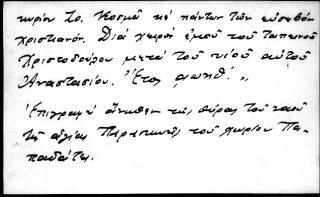 κυρίου Σο. Κοσμᾶ κὲ πάντων τῶν εὐσεβῶν
χριστιανόν. Διά χειρός ἐμοῦ τοῦ ταπεινοῦ
Χριστοδούλου μετά τοῦ υἱοῦ αὐτοῦ
Ἀναστασίου. Ἔτος αωνθ΄. "
Ἐπιγραφή ἄνωθεν τῆς θύρας τοῦ ναοῦ
τῆς ἁγίας Παρασκευῆς τοῦ χωρίου Πα-
παδάτες.